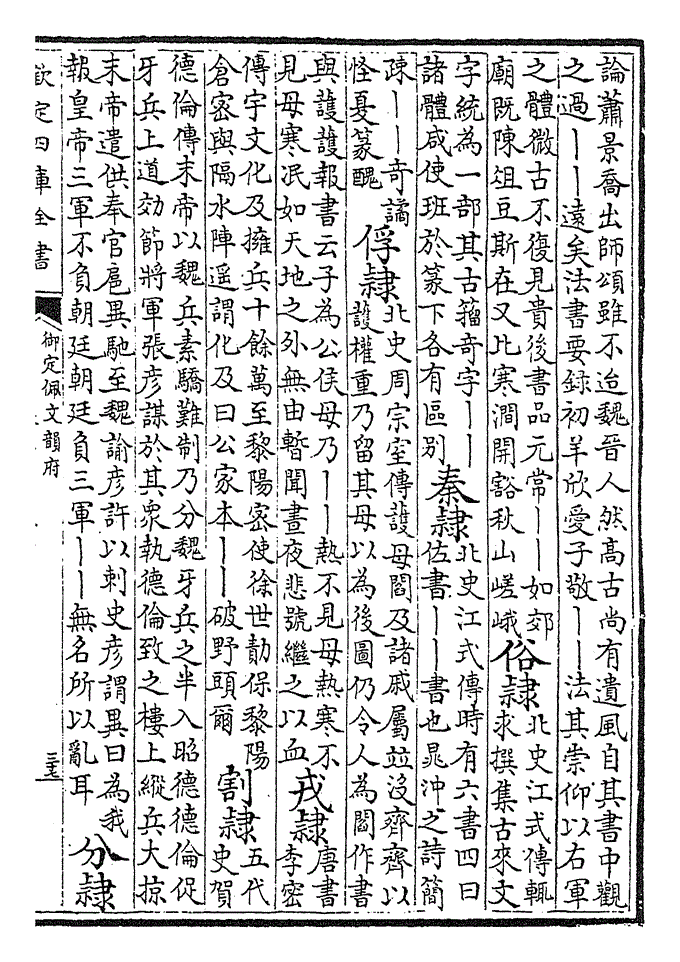 論蕭景喬出師頌雖不迨魏晉人然髙古尚有遺風自其書中觀
之過——逺矣法書要録初羊欣愛子敬——法其崇仰以右軍
之體微古不復見貴後書品元常——如郊
廟既陳俎豆斯在又比寒澗開谿秋山嵯峨
俗隸
北史江式傳輒
求撰集古來文
字統為一部其古籀奇字——
諸體咸使班於篆下各有區别
秦隸
北史江式傳時有六書四曰
佐書——書也晁沖之詩簡
疎——奇譎
怪憂篆醜
俘隸
北史周宗室傳護母閻及諸戚屬竝没齊齊以
護權重乃留其母以為後圖仍令人為閻作書
與護護報書云子為公侯母乃——熱不見母熱寒不
見母寒泯如天地之外無由暫聞晝夜悲號繼之以血
戎隸
唐書
李密
傳宇文化及擁兵十餘萬至黎陽宻使徐世勣保黎陽
倉宻與隔水陣遥謂化及曰公家本——破野頭爾
割隸
五代
史賀
德倫傳末帝以魏兵素驕難制乃分魏牙兵之半入昭德德倫促
牙兵上道効節將軍張彦謀於其衆執德倫致之樓上縱兵大掠
末帝遣供奉官扈異馳至魏諭彦許以刺史彦謂異曰為我
報皇帝三軍不負朝廷朝廷負三軍——無名所以亂耳
分隸
欽定四庫全書
御定佩文韻府
三七